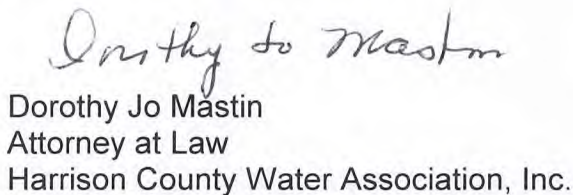 Dorothy Jo Mastin
Dorothy Jo Mastin
Attorney at Law
Harrison County Water Association, Inc.